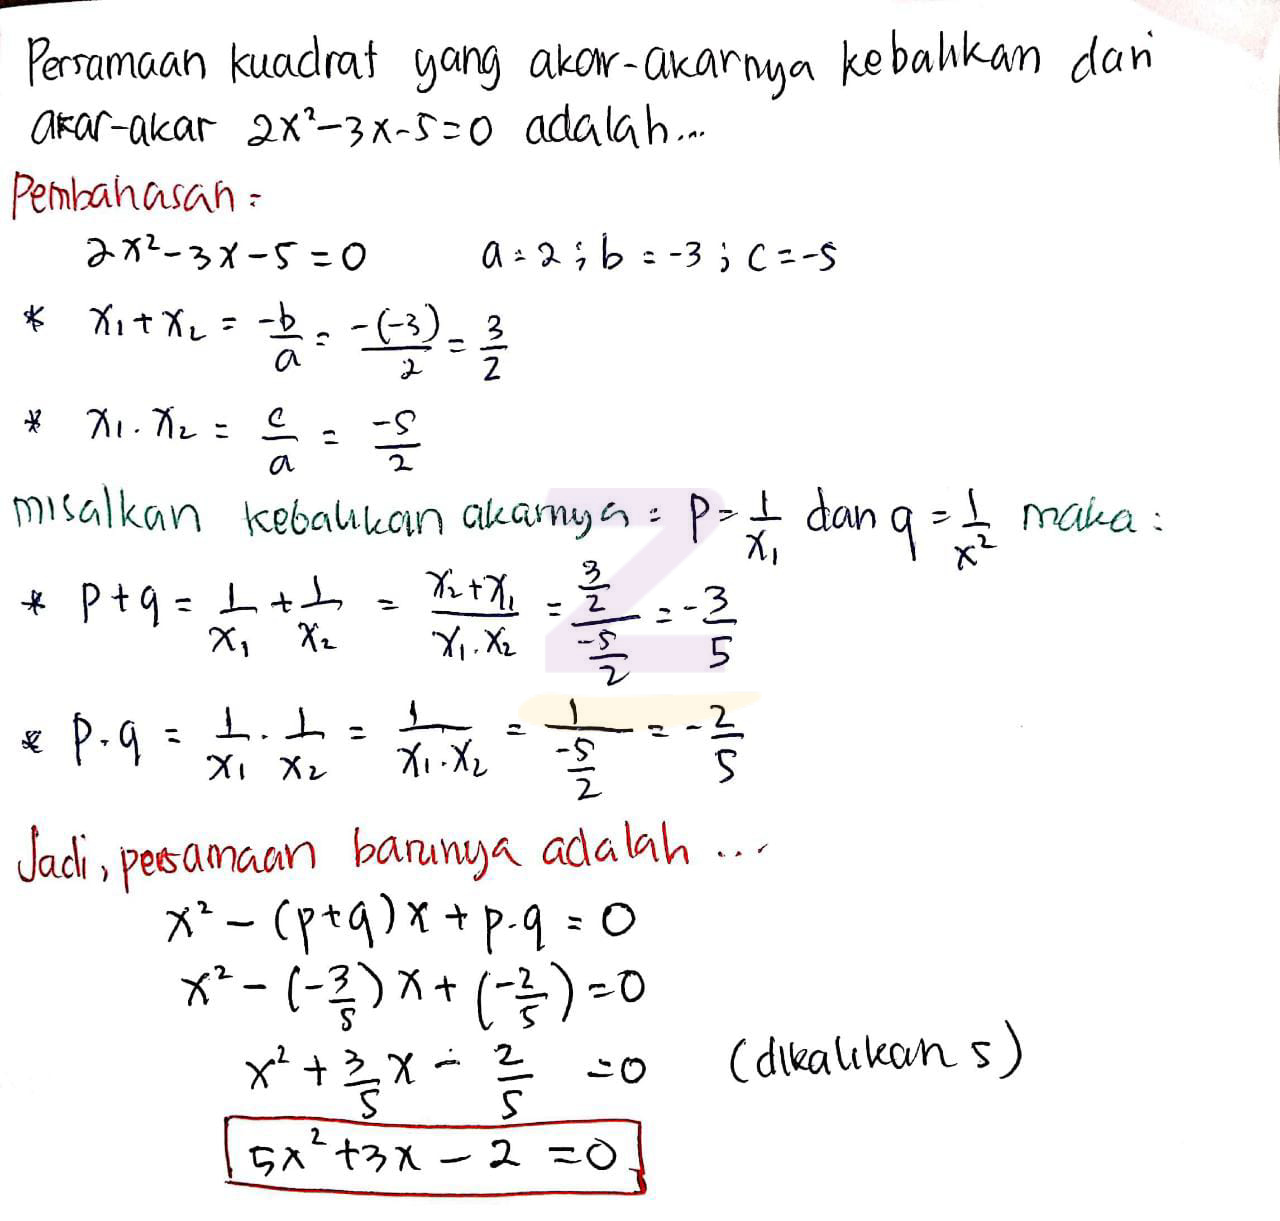 Persamaan kuadrat yang akar-akarnya kebalikan dari
akar-akar 2x²-3x-5=0 adalah...
Pembahasan:
2x²-3x-5=0 a=2; b=-3; c=-5
* x₁+x₂ = -b/a = -(-3)/2 = 3/2
* x₁.x₂ = c/a = -5/2
misalkan kebalikan akarnya: p=1/x₁ dan q=1/x² maka:
* p+q = 1/x₁ + 1/x₂ = (x₂+x₁)/(x₁.x₂) = (3/2)/(-5/2) = -3/5
* p.q = 1/x₁ . 1/x₂ = 1/(x₁.x₂) = 1/(-5/2) = -2/5
Jadi, persamaan barunya adalah ...
x² - (p+q)x + p.q = 0
x² - (-3/5)x + (-2/5) = 0
x² + 3/5x - 2/5 = 0 (dikalikan 5)
5x²+3x-2=0